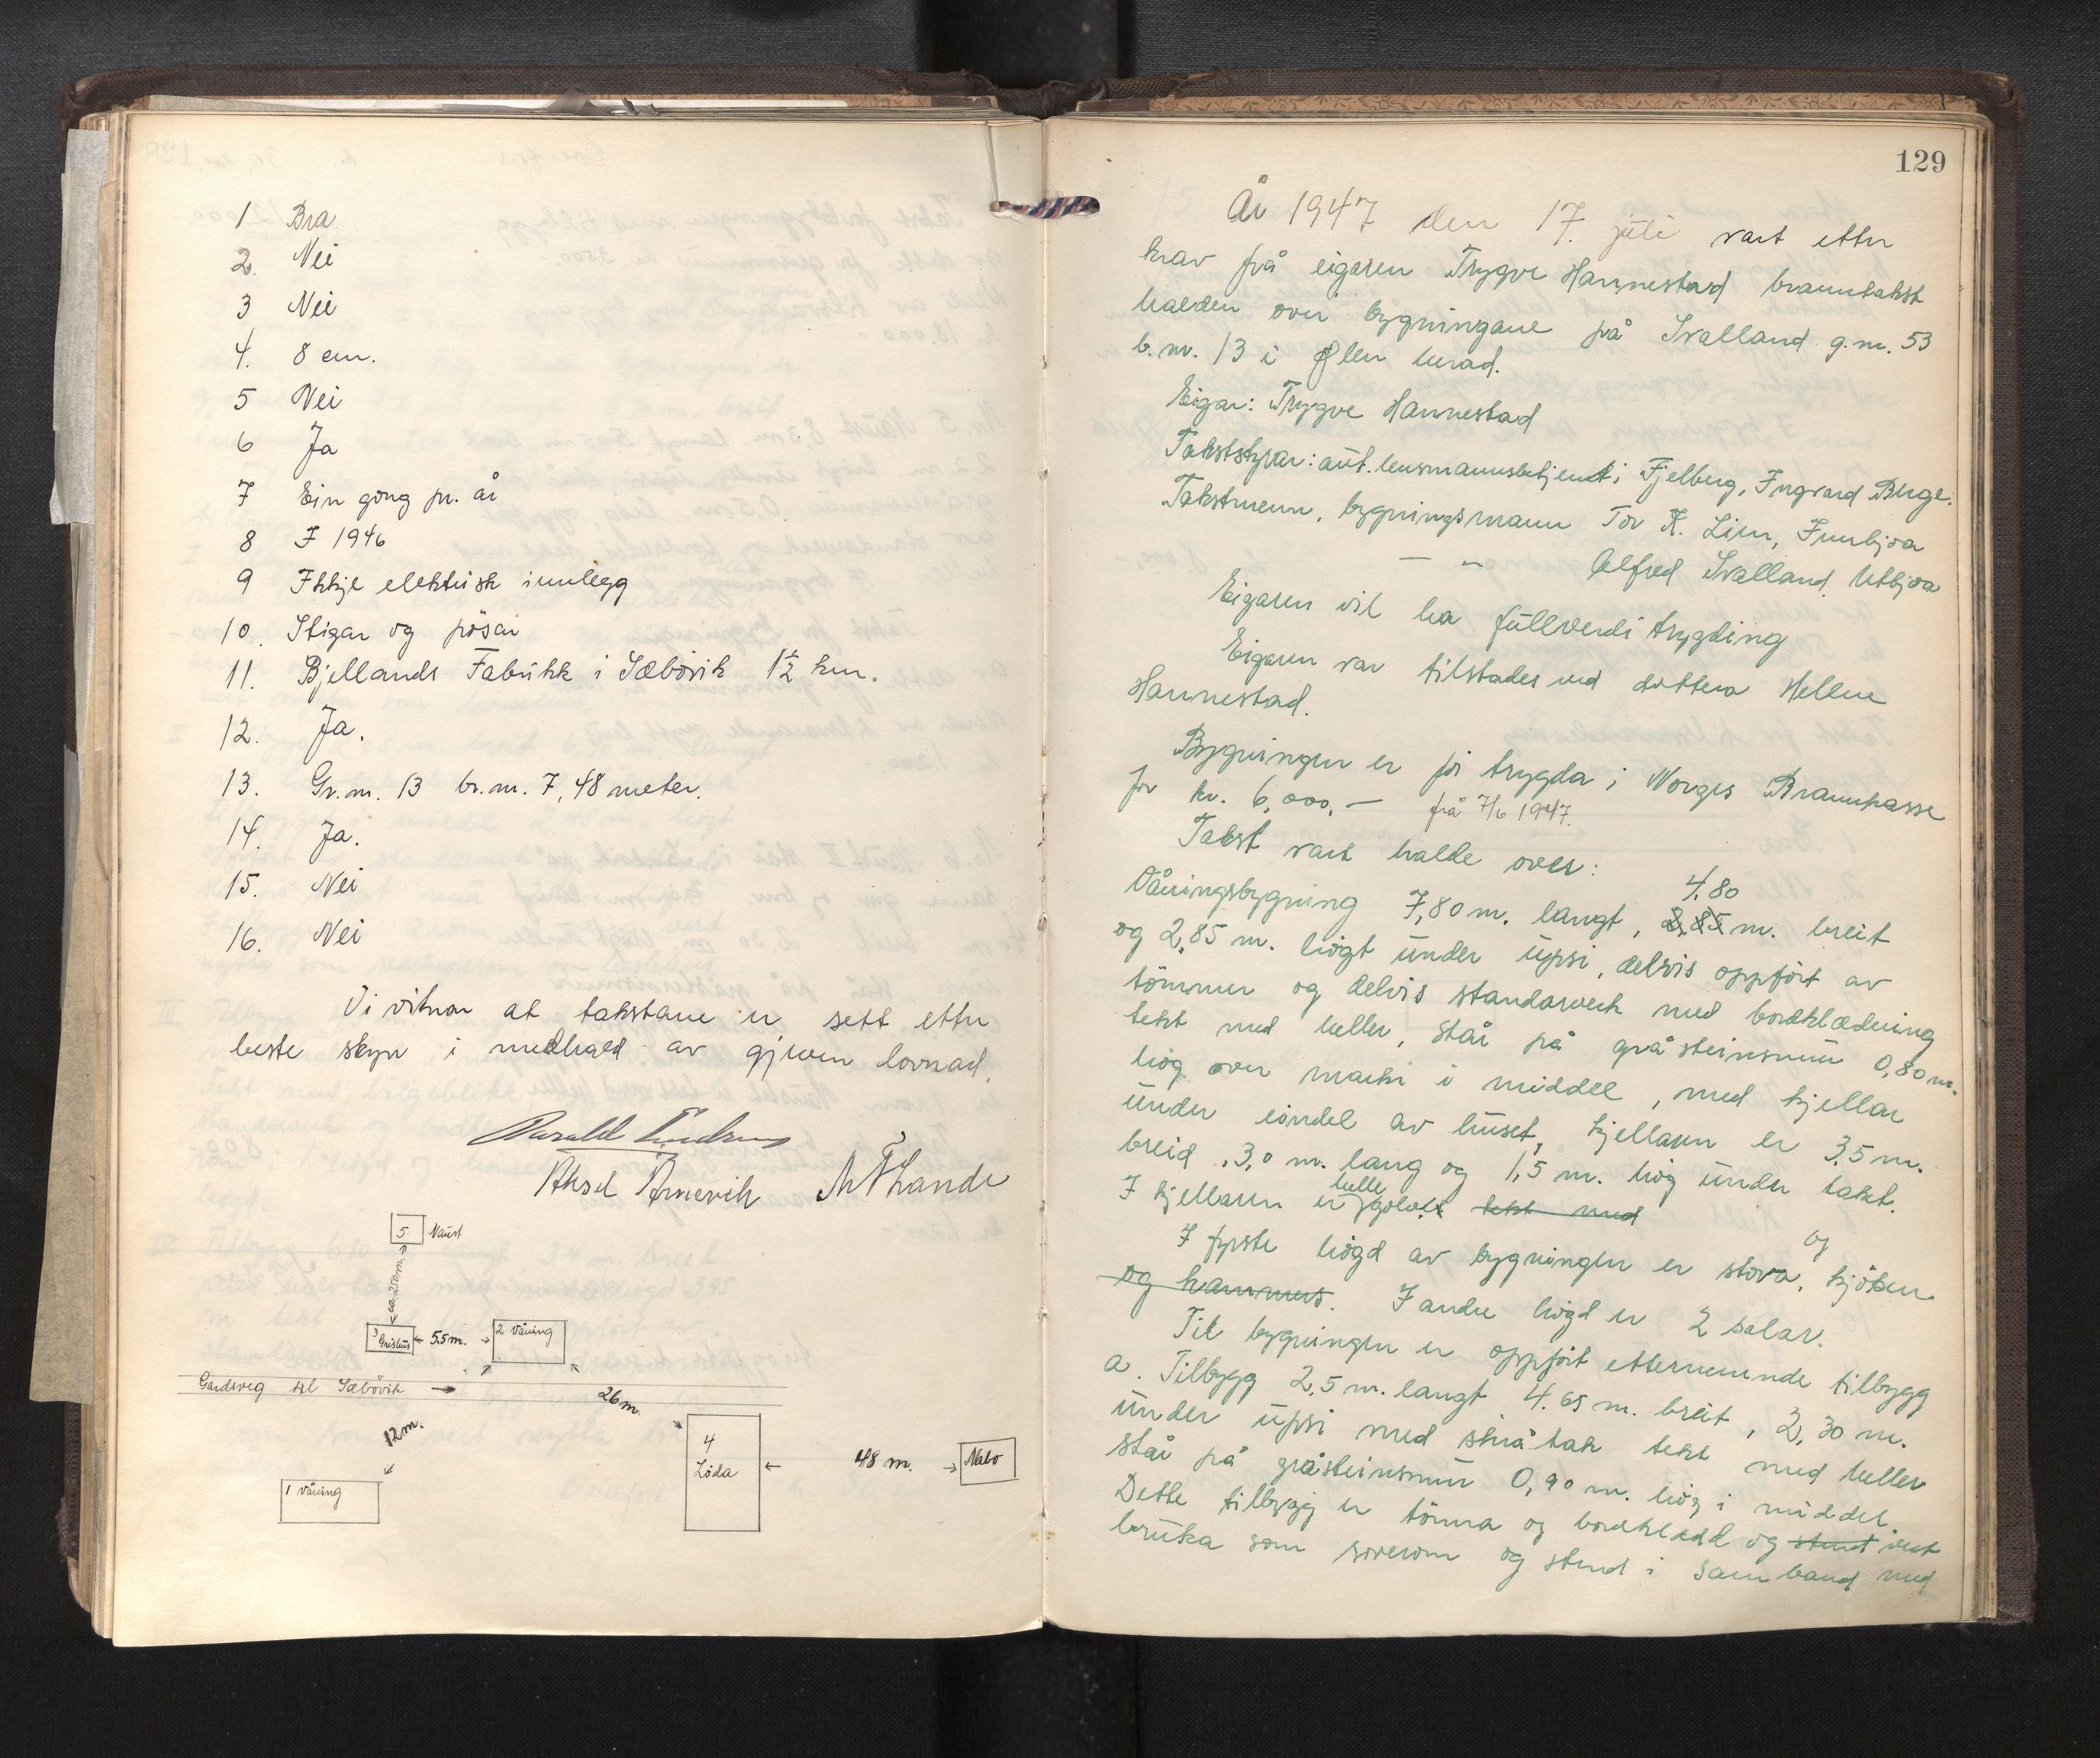 1 Bra
2. Nei
3 Nei
4. 8 cm.
5 Nei
6 Ja
7 Ein gong pr. år
8 I 1946
9 Ikkje elektrisk innlegg
10. Stigar og pösar
11. Bjellands Fabrikk i Sæbövik 1½ km.
12. Ja.
13. Gr.nr. 13 br.nr. 7, 48 meter.
14. Ja.
15. Nei
16. Nei
Vi vitnar at takstane er sett etter
beste skyn i medhald av gjeven lovnad.
Aksel Arnevik
5 Naust
ca 250 m.
3 Grishus 5.5 m. 2 Våning
Gardsveg til Sæbövik
26 m.
12 m.
4 Löda 48 m. Nabo
1 Våning
129
År 1947 den 17. juli vart etter
krav frå eigaren Trygve Hannestad branntakst
halden over bygningane på Svalland g.nr. 53
b.nr. 13 i Ølen herad.
Eigar: Trygve Hannestad
Takststyrar: aut. lensmannsbetjent i Fjelberg, Ingvard Berge.
Takstmenn, bygningsmann Tor K. Lien, Innbjoa
— " — Alfred Svalland, Utbjoa
Eigaren vil ha fullverdi trygding
Eigaren var tilstades ved dottera Hellene
Hannestad.
Bygningen er för trygda i Norges Brannkasse
for kr. 6.000,- frå 7/6 1947.
Takst vart halde over:
4.80
Våningsbygning 7,80 m. langt, 2,85 m. breit
og 2,85 m. högt under upsi, delvis oppfört av
tömmer og delvis standarverk med bordklædning
tekt med heller, står på gråsteinsmur 0,80 m.
hög over marki i middel, med kjellar
under eindel av huset, kjellaren er 3,5 m.
breid, 3,0 m. lang og 1,5 m. hög under taket.
helle
I kjellaren er golvet tekt med
I fyste högd av bygningen er stova, og kjöken
og kammers. I andre högd er 2 salar.
Til bygningen er oppfört etternemnde tilbygg
a. Tilbygg 2,5 m. langt 4.65 m. breit, 2,30 m.
under upsi med skråtak tekt med heller
står på gråsteinsmur 0,90 m. hög i middel.
Dette tilbygg er tömra og bordkledd og stend vert
bruka som soverom og stend i samband med